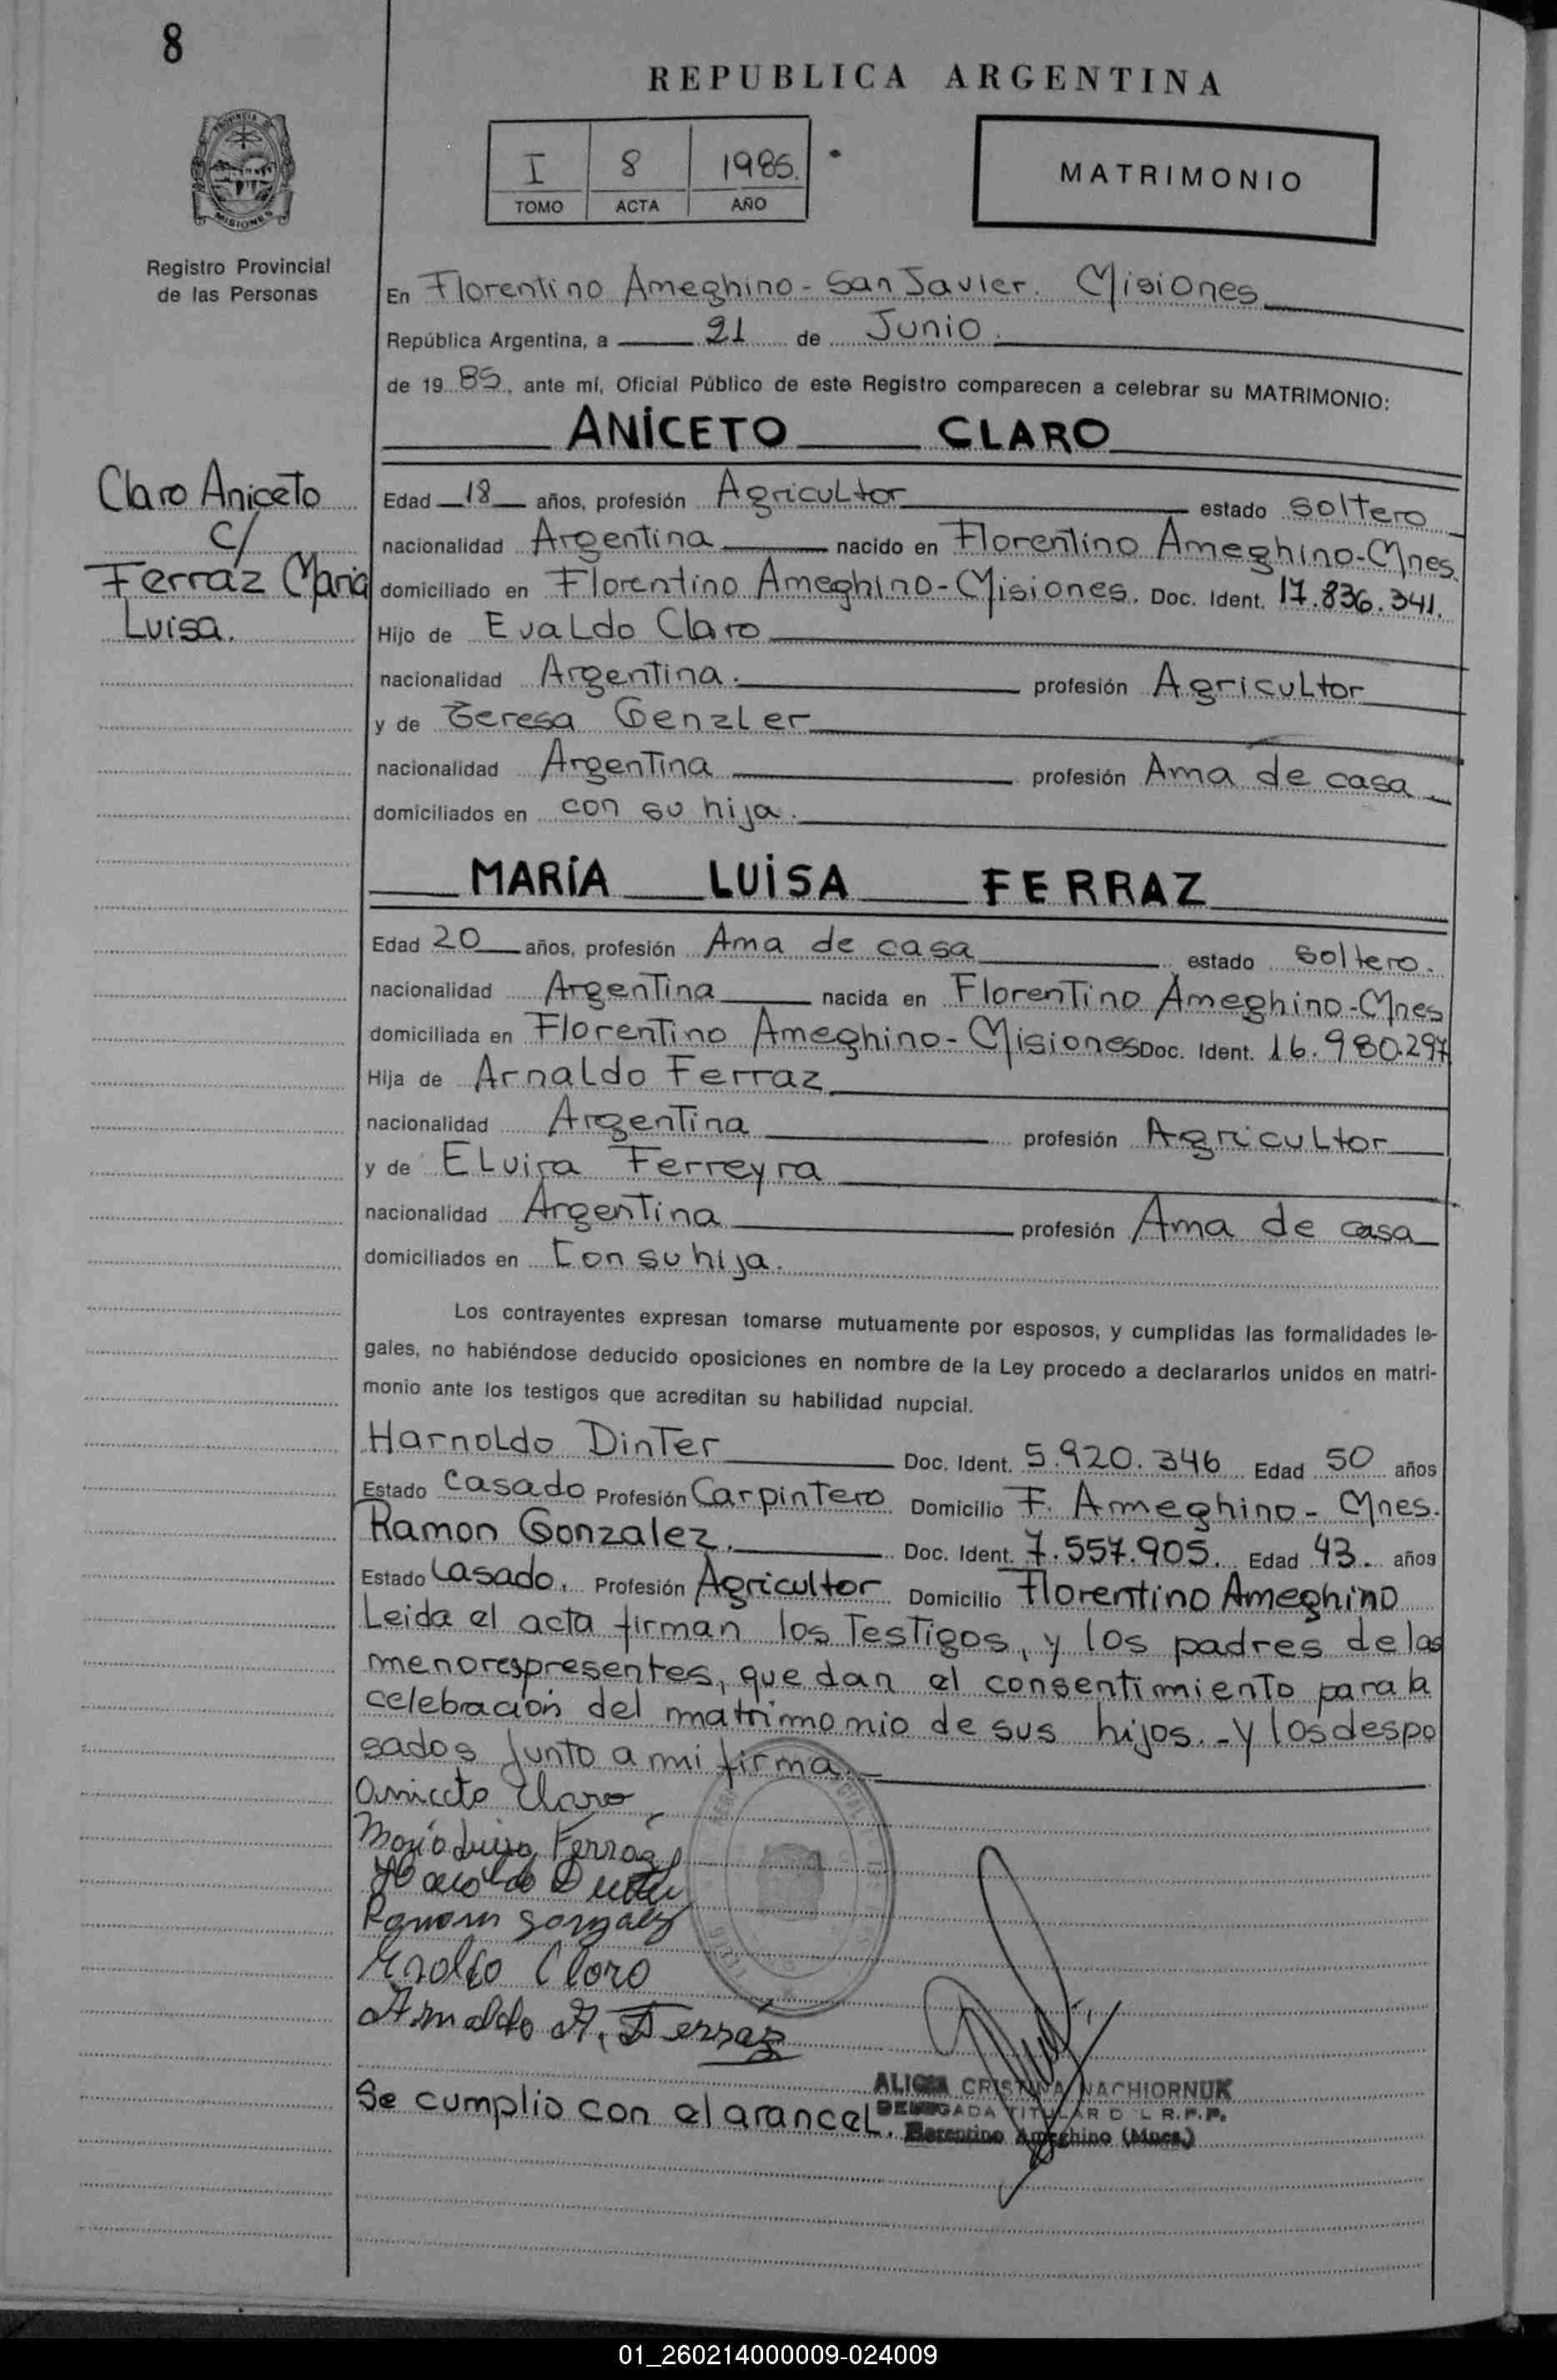 8
REPUBLICA ARGENTINA
I 8 1985.
TOMO ACTA AÑO
MATRIMONIO
PROVINCIA DE
MISIONES
Registro Provincial
de las Personas
En Florentino Ameghino - San Javier. Misiones
República Argentina, a 21 de Junio.
de 1985, ante mí, Oficial Público de este Registro comparecen a celebrar su MATRIMONIO:
ANICETO CLARO
Claro Aniceto
c/
Ferraz Maria
Luisa.
Edad 18 años, profesión Agricultor estado soltero
nacionalidad Argentina nacido en Florentino Ameghino-Mnes.
domiciliado en Florentino Ameghino-Misiones. Doc. Ident. 17.836.341.
Hijo de Evaldo Claro
nacionalidad Argentina. profesión Agricultor
y de Teresa Genzler
nacionalidad Argentina profesión Ama de casa
domiciliados en con su hija.
MARÍA LUISA FERRAZ
Edad 20 años, profesión Ama de casa estado soltero.
nacionalidad Argentina nacida en Florentino Ameghino-Mnes
domiciliada en Florentino Ameghino-Misiones Doc. Ident. 16.980.297
Hija de Arnaldo Ferraz
nacionalidad Argentina profesión Agricultor
y de Elvira Ferreyra
nacionalidad Argentina profesión Ama de casa
domiciliados en Con su hija.
Los contrayentes expresan tomarse mutuamente por esposos, y cumplidas las formalidades le-
gales, no habiéndose deducido oposiciones en nombre de la Ley procedo a declararlos unidos en matri-
monio ante los testigos que acreditan su habilidad nupcial.
Harnoldo Dinter Doc. Ident. 5.920.346 Edad 50 años
Estado Casado Profesión Carpintero Domicilio F. Ameghino - Mnes.
Ramon Gonzalez. Doc. Ident. 7.557.905. Edad 43. años
Estado Casado. Profesión Agricultor Domicilio Florentino Ameghino
Leida el acta firman los Testigos, y los padres de las
menores presentes, que dan el consentimiento para la
celebración del matrimonio de sus hijos.-y los despo
sados junto a mi firma.
Aniceto Claro
Maria Luisa Ferraz
Ramon gonzalez
Claro
Arnaldo A. Ferraz
Se cumplio con el arancel.
ALICIA CRISTINA NACHIORNUK
DELEGADA TITULAR D L R.P.P.
Florentino Ameghino (Mnes.)
01_260214000009-024009